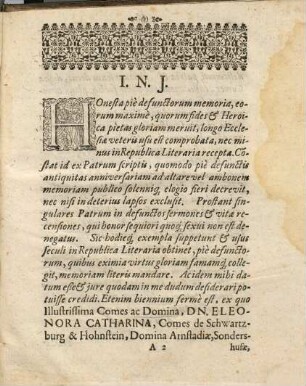 3
I. N. J.
HOnesta piè defunctorum memoria, eo-
rum maximè, quorum fides & Heroi-
ca pietas gloriam meruit, longo Eccle-
siæ veteris usu est comprobata, nec mi-
nus in Republica Literaria recepta. Cõ-
stat id ex Patrum scriptis, quomodo piè defunctis
antiquitas anniversariam ad altare vel ambonem
memoriam publico solenniq; elogio fieri decrevit,
nec nisi in deterius lapsos exclusit. Prostant sin-
gulares Patrum in defunctos sermones & vitæ re-
censiones, qui honor sequiori quoq; sexui non est de-
negatus. Sic hodieq; exempla suppetunt & usus
seculi in Republica Literaria obtinet, piè defuncto-
rum, quibus eximia virtus gloriam famamq; colle-
git, memoriam literis mandare. Acidem mihi da-
tum esse & jure quodam in me dudum desiderari po-
tuisse credidi. Etenim biennium fermè est, ex quo
Illustrissima Comes ac Domina, DN. ELEO-
NORA CATHARINA, Comes de Schwartz-
burg & Hohnstein, Domina Arnstadiæ, Sonders-
A 2 husæ,